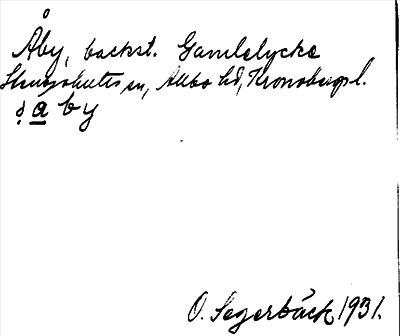 Åby, backst. Gamlelycke
Skatelövs sn, Allbo hd, Kronobergs l.
åby
O. Segerbäck 1931.